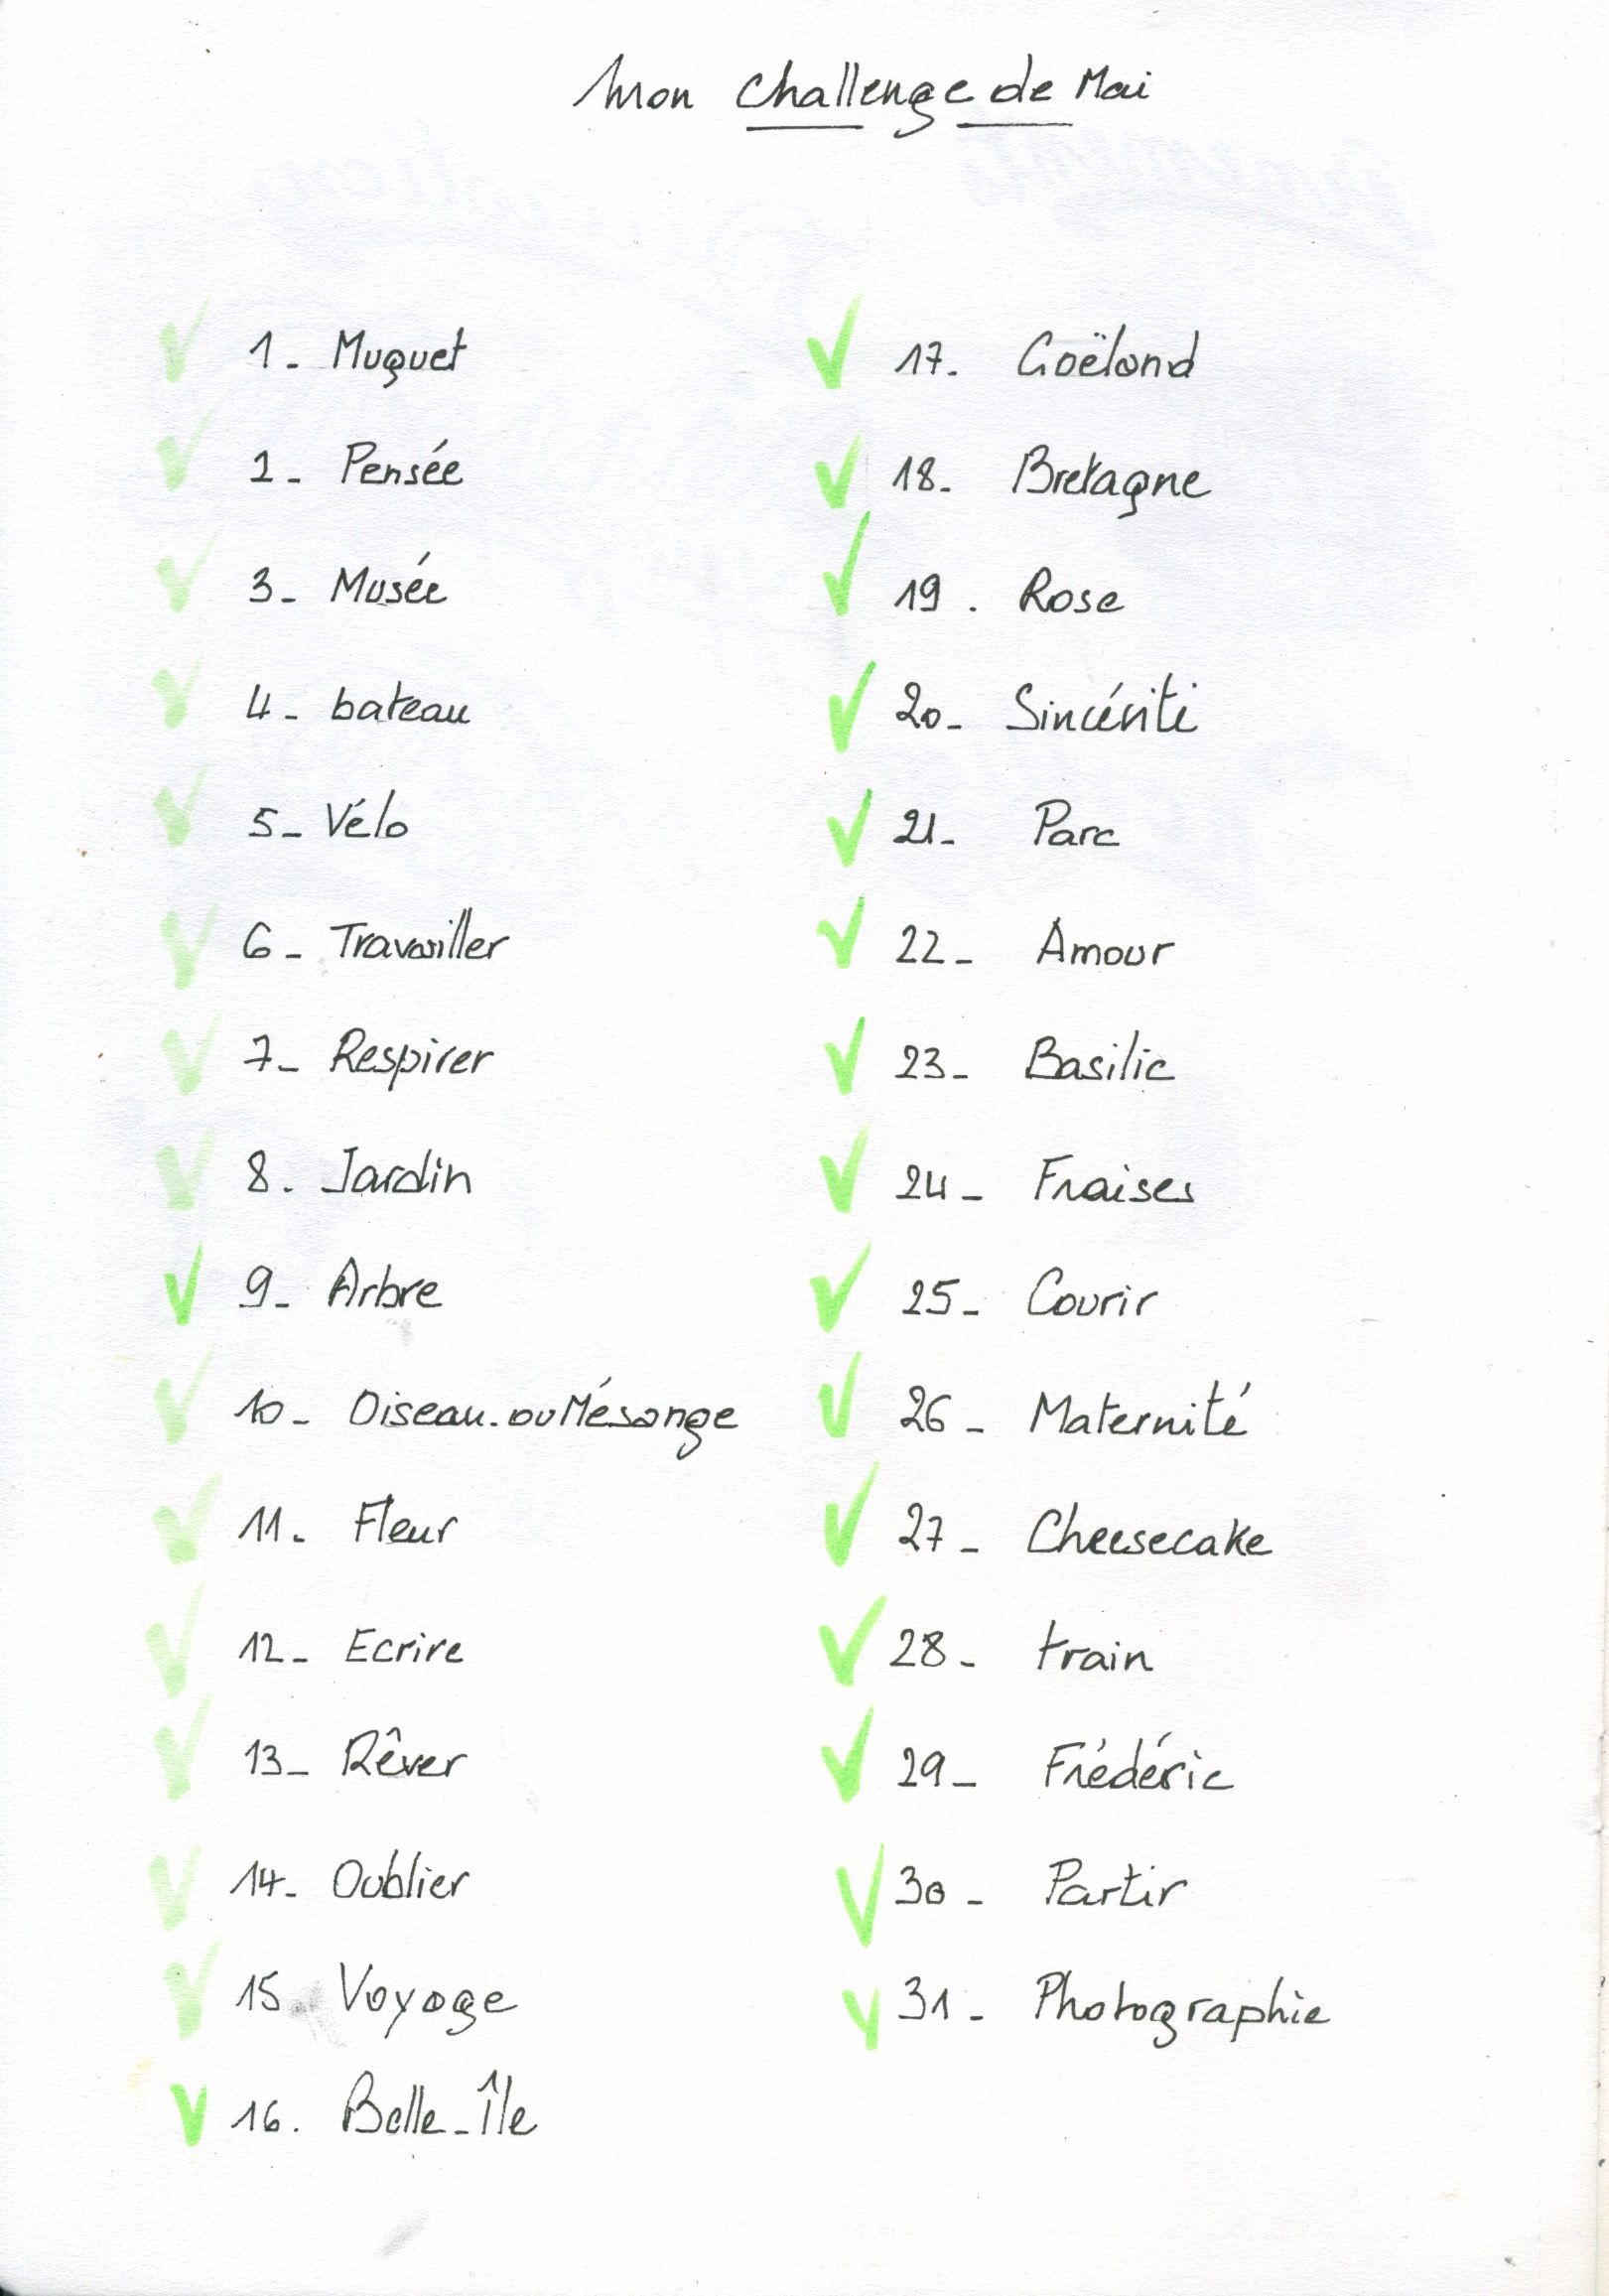 Mon Challenge de Mai
1- Muguet
2- Pensée
3- Musée
4- bateau
5- Vélo
6- Travailler
7- Respirer
8. Jardin
9- Arbre
10- Oiseau-ou Mésange
11. Fleur
12- Ecrire
13- Rêver
14- Oublier
15. Voyage
16. Belle-Île
17. Goëland
18- Bretagne
19. Rose
20- Sincérité
21- Parc
22- Amour
23- Basilic
24- Fraises
25- Courir
26- Maternité
27- Cheesecake
28- train
29- Frédéric
30- Partir
31- Photographie